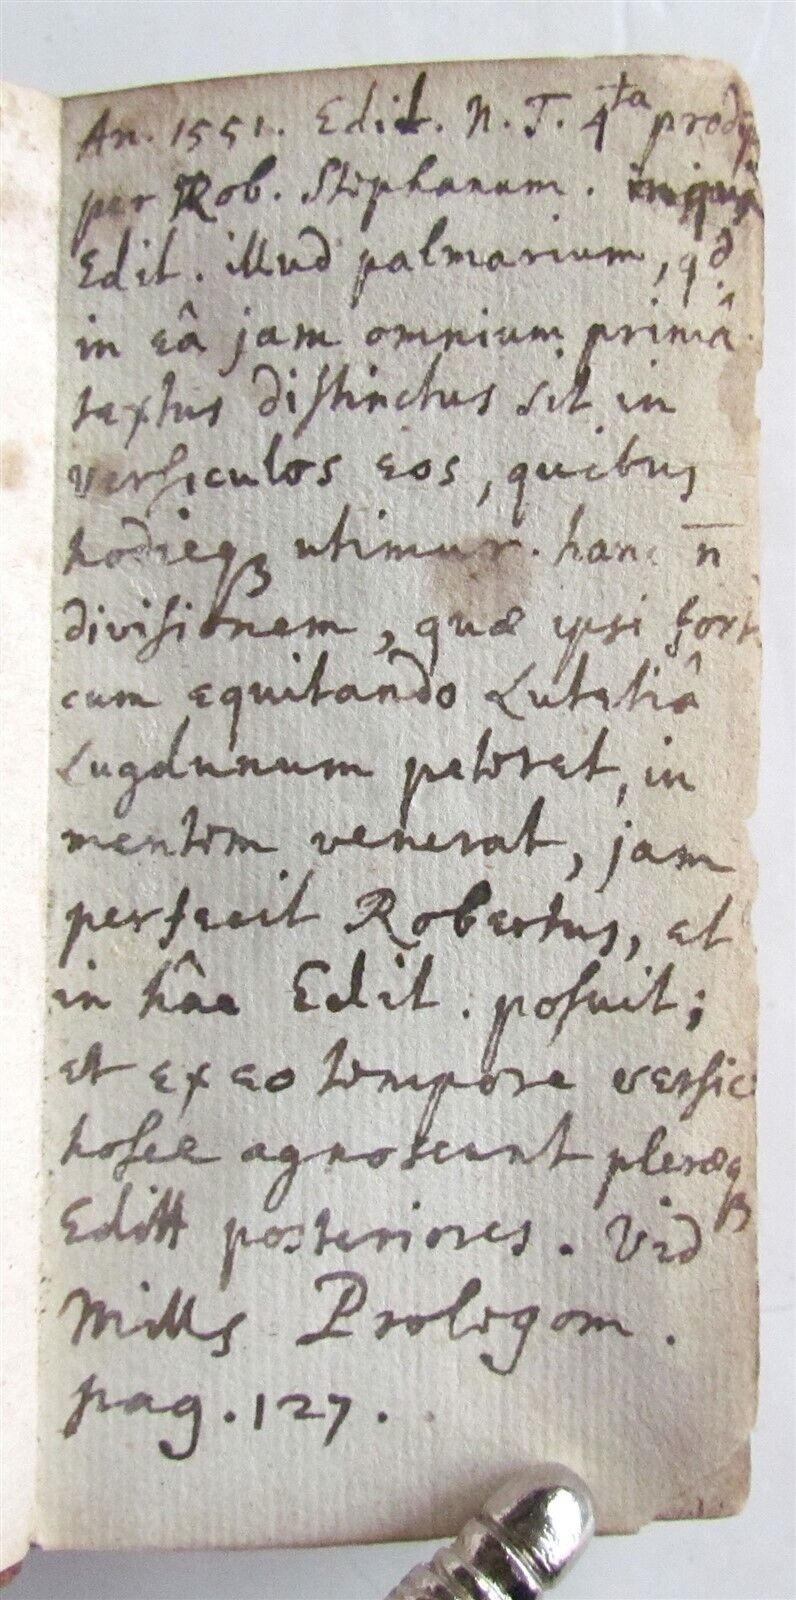 An. 1551. Edit. N. T. 4ta prodijt
per Rob. Stephanum.
Edit. illud palmarium, qd
in eâ jam omnium primâ
textus distinctus sit in
versiculos eos, quibus
hodieq; utimur. hanc n̄
divisionem, quæ ipsi forte
cum equitando Lutetiâ
Lugdunum peteret, in
mentem venerat, jam
perfecit Robertus, et
in hâc Edit. posuit;
et ex eo tempore versic
hosce agnoscunt pleræq;
Editt posteriores. Vid
Mills Prolegom.
pag. 127.